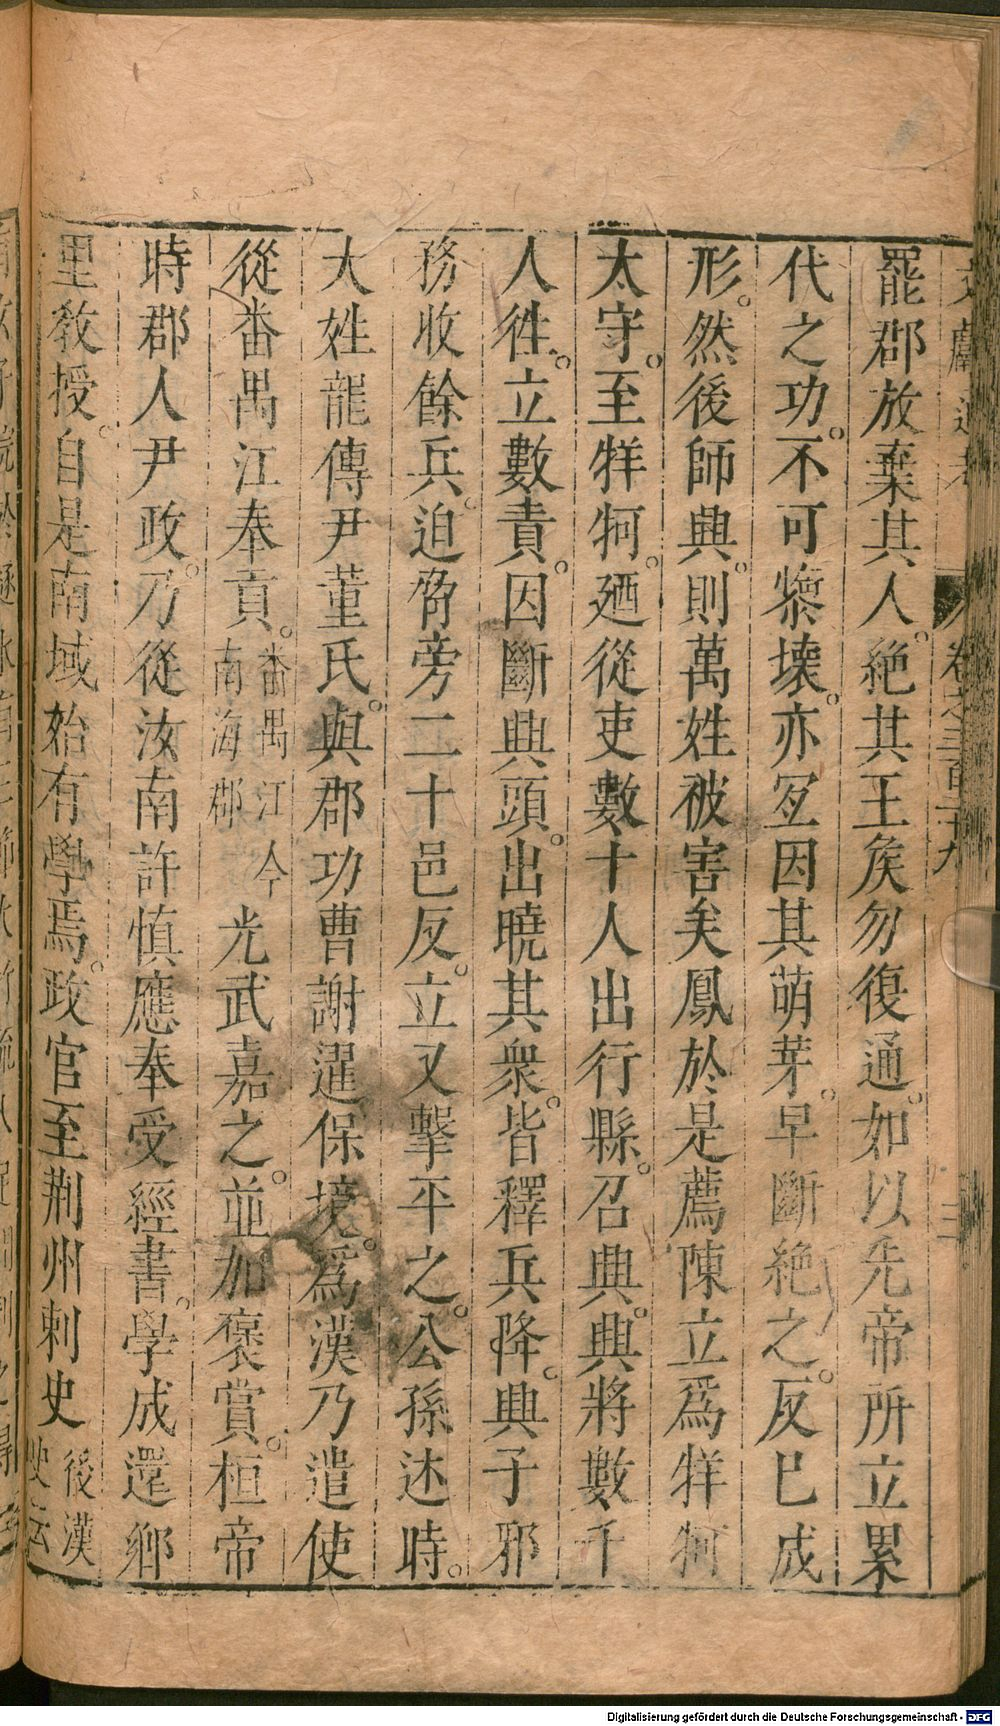 文獻通考 卷之三百二十九 三
罷郡放棄其人。絶其王矦勿復通。如以先帝所立累
代之功。不可隳壊。亦宐因其萌芽。早斷絶之。反巳成
形。然後師興。則萬姓被害矣鳳於是薦陳立爲牂牁
太守。至牂牁。廼從吏數十人出行縣。召興。興將數千
人徃。立數責。因斷興頭。出曉其衆。皆釋兵降。興子邪
務收餘兵。迫脅旁二十邑反。立又擊平之。公孫述時。
大姓龍傳尹董氏。與郡功曹謝暹保境。爲漢乃遣使
從番禺江奉貢。番禺江今南海郡光武嘉之。並加褒賞。桓帝
時郡人尹政。乃從汝南許慎應奉受經書。學成還鄉
里教授。自是南域始有學焉。政官至荆州刺史後漢史云
Digitalisierung gefördert durch die Deutsche Forschungsgemeinschaft - DFG